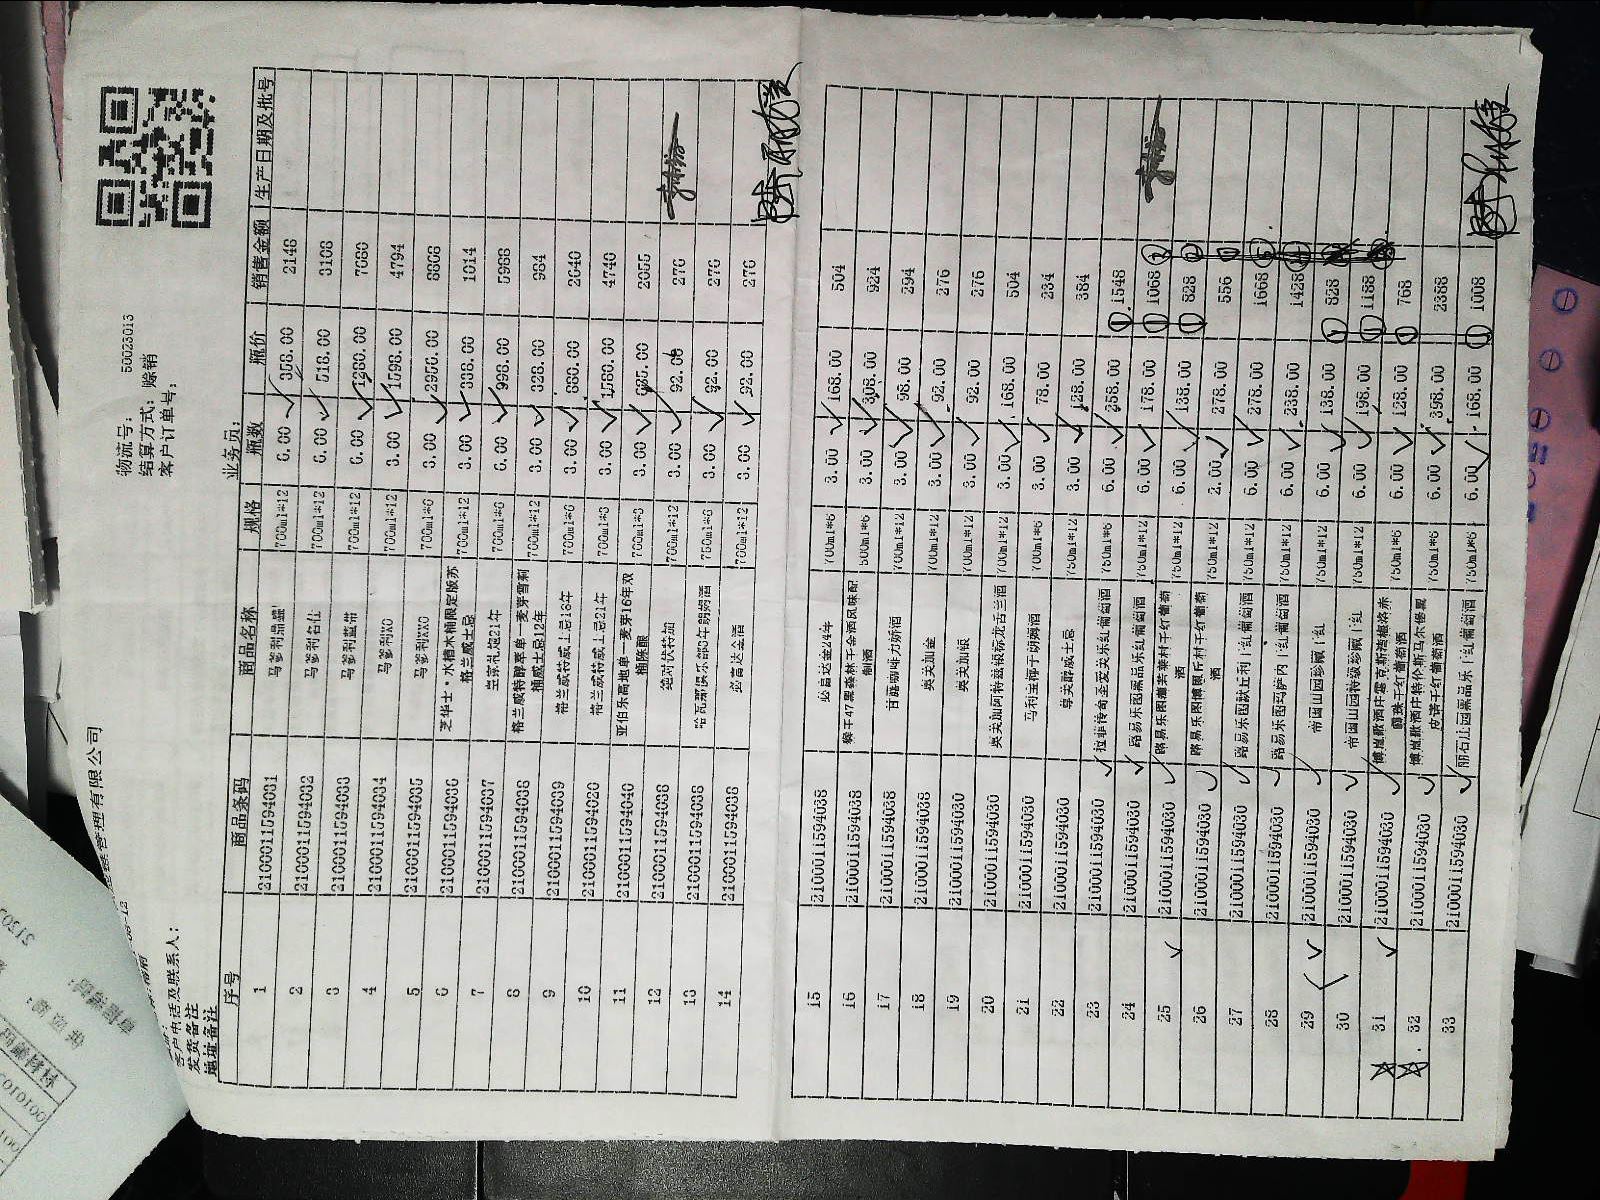 物流号: 50023013
结算方式: 赊销
客户订单号:
管理有限公司
业务员:
客户电话及联系人:
发货备注
地址备注
序号 商品条码 商品名称 规格 瓶数 瓶价 销售金额 生产日期及批号
1 2100011594031 马爹利鼎盛 700ml*12 6.00 358.00 2148
2 2100011594032 马爹利名仕 700ml*12 6.00 518.00 3108
3 2100011594033 马爹利蓝带 700ml*12 6.00 1280.00 7680
4 2100011594034 马爹利XO 700ml*12 3.00 1598.00 4794
5 2100011594035 马爹利XXO 700ml*6 3.00 2956.00 8868
6 2100011594036 芝华士·水楢木桶限定版苏格兰威士忌 700ml*12 3.00 338.00 1014
7 2100011594037 皇家礼炮21年 700ml*6 6.00 998.00 5988
8 2100011594038 格兰威特醇萃单一麦芽雪莉桶威士忌12年 700ml*12 3.00 328.00 984
9 2100011594039 格兰威特威士忌18年 700ml*6 3.00 880.00 2640
10 2100011594020 格兰威特威士忌21年 700ml*3 3.00 1580.00 4740
11 2100011594040 亚伯乐高地单一麦芽16年双桶陈酿 700ml*6 3.00 685.00 2055
12 2100011594038 绝对伏特加 700ml*12 3.00 92.00 276
13 2100011594038 哈瓦那俱乐部3年朗姆酒 750ml*6 3.00 92.00 276
14 2100011594038 必富达金酒 700ml*12 3.00 92.00 276
15 2100011594038 必富达金24年 700ml*6 3.00 168.00 504
16 2100011594038 猴王47黑森林干金酒风味配制酒 500ml*6 3.00 308.00 924
17 2100011594038 甘露咖啡力娇酒 700ml*12 3.00 98.00 294
18 2100011594038 奥美加金 700ml*12 3.00 92.00 276
19 2100011594030 奥美加银 700ml*12 3.00 92.00 276
20 2100011594030 奥美加阿特兹银标龙舌兰酒 700ml*12 3.00 168.00 504
21 2100011594030 马利宝椰子朗姆酒 700ml*6 3.00 78.00 234
22 2100011594030 尊美醇威士忌 750ml*12 3.00 128.00 384
23 2100011594030 拉菲传奇金爱关乐红葡萄酒 750ml*6 6.00 258.00 ① 1548
24 2100011594030 路易乐图黑品乐红葡萄酒 750ml*12 6.00 178.00 ① 1068
25 2100011594030 路易乐图 村干红葡萄酒 750ml*12 6.00 138.00 ① 828
26 2100011594030 路易乐图博 丘村干红葡萄酒 750ml*12 2.00 278.00 556
27 2100011594030 路易乐图默丘利干红葡萄酒 750ml*12 6.00 278.00 1668
28 2100011594030 路易乐图玛萨内干红葡萄酒 750ml*12 6.00 238.00 1428
29 2100011594030 帝国山园珍藏干红 750ml*12 6.00 138.00 828
30 2100011594030 帝国山园特级珍藏干红 750ml*12 6.00 198.00 ① 1188
31 2100011594030 博岚歌酒庄 干红葡萄酒 750ml*6 6.00 128.00 ① 768
32 2100011594030 博岚歌酒庄特伦斯马尔伯 皮诺干红葡萄酒 750ml*6 6.00 398.00 2388
33 2100011594030 丽石庄园黑品乐干红葡萄酒 750ml*6 6.00 168.00 ① 1008